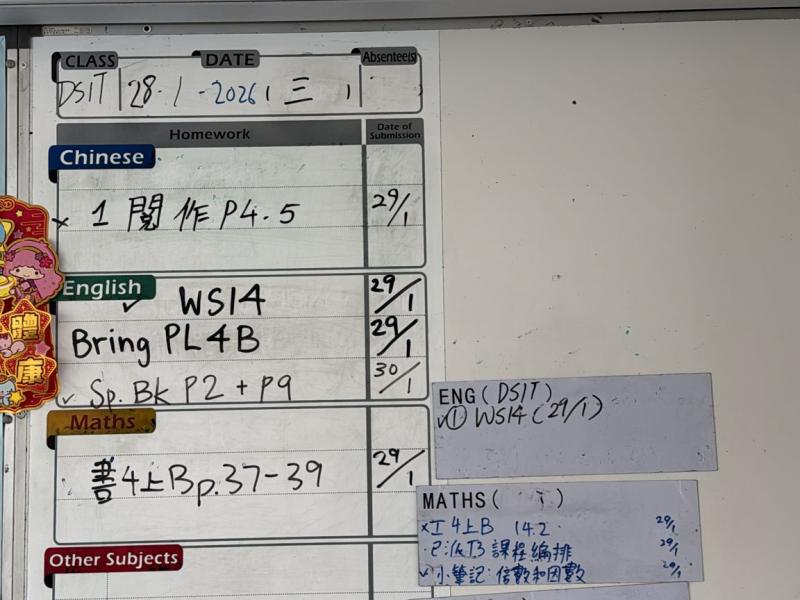 CLASS DATE Absentee(s)
DSIT 28.1-2026 (三)
Homework Date of Submission
Chinese
× 1 閱作 P4.5 29/1
English
✓ WS14 29/1
Bring PL4B 29/1
✓ Sp. Bk P2 + P9 30/1
Maths
書4上B p.37-39 29/1
Other Subjects
ENG (DSIT)
✓① WS14 (29/1)
MATHS ( )
×工4上B 14.2 29/1
已派T3 課程編排 29/1
✓小筆記:倍數和因數 29/1
體
康